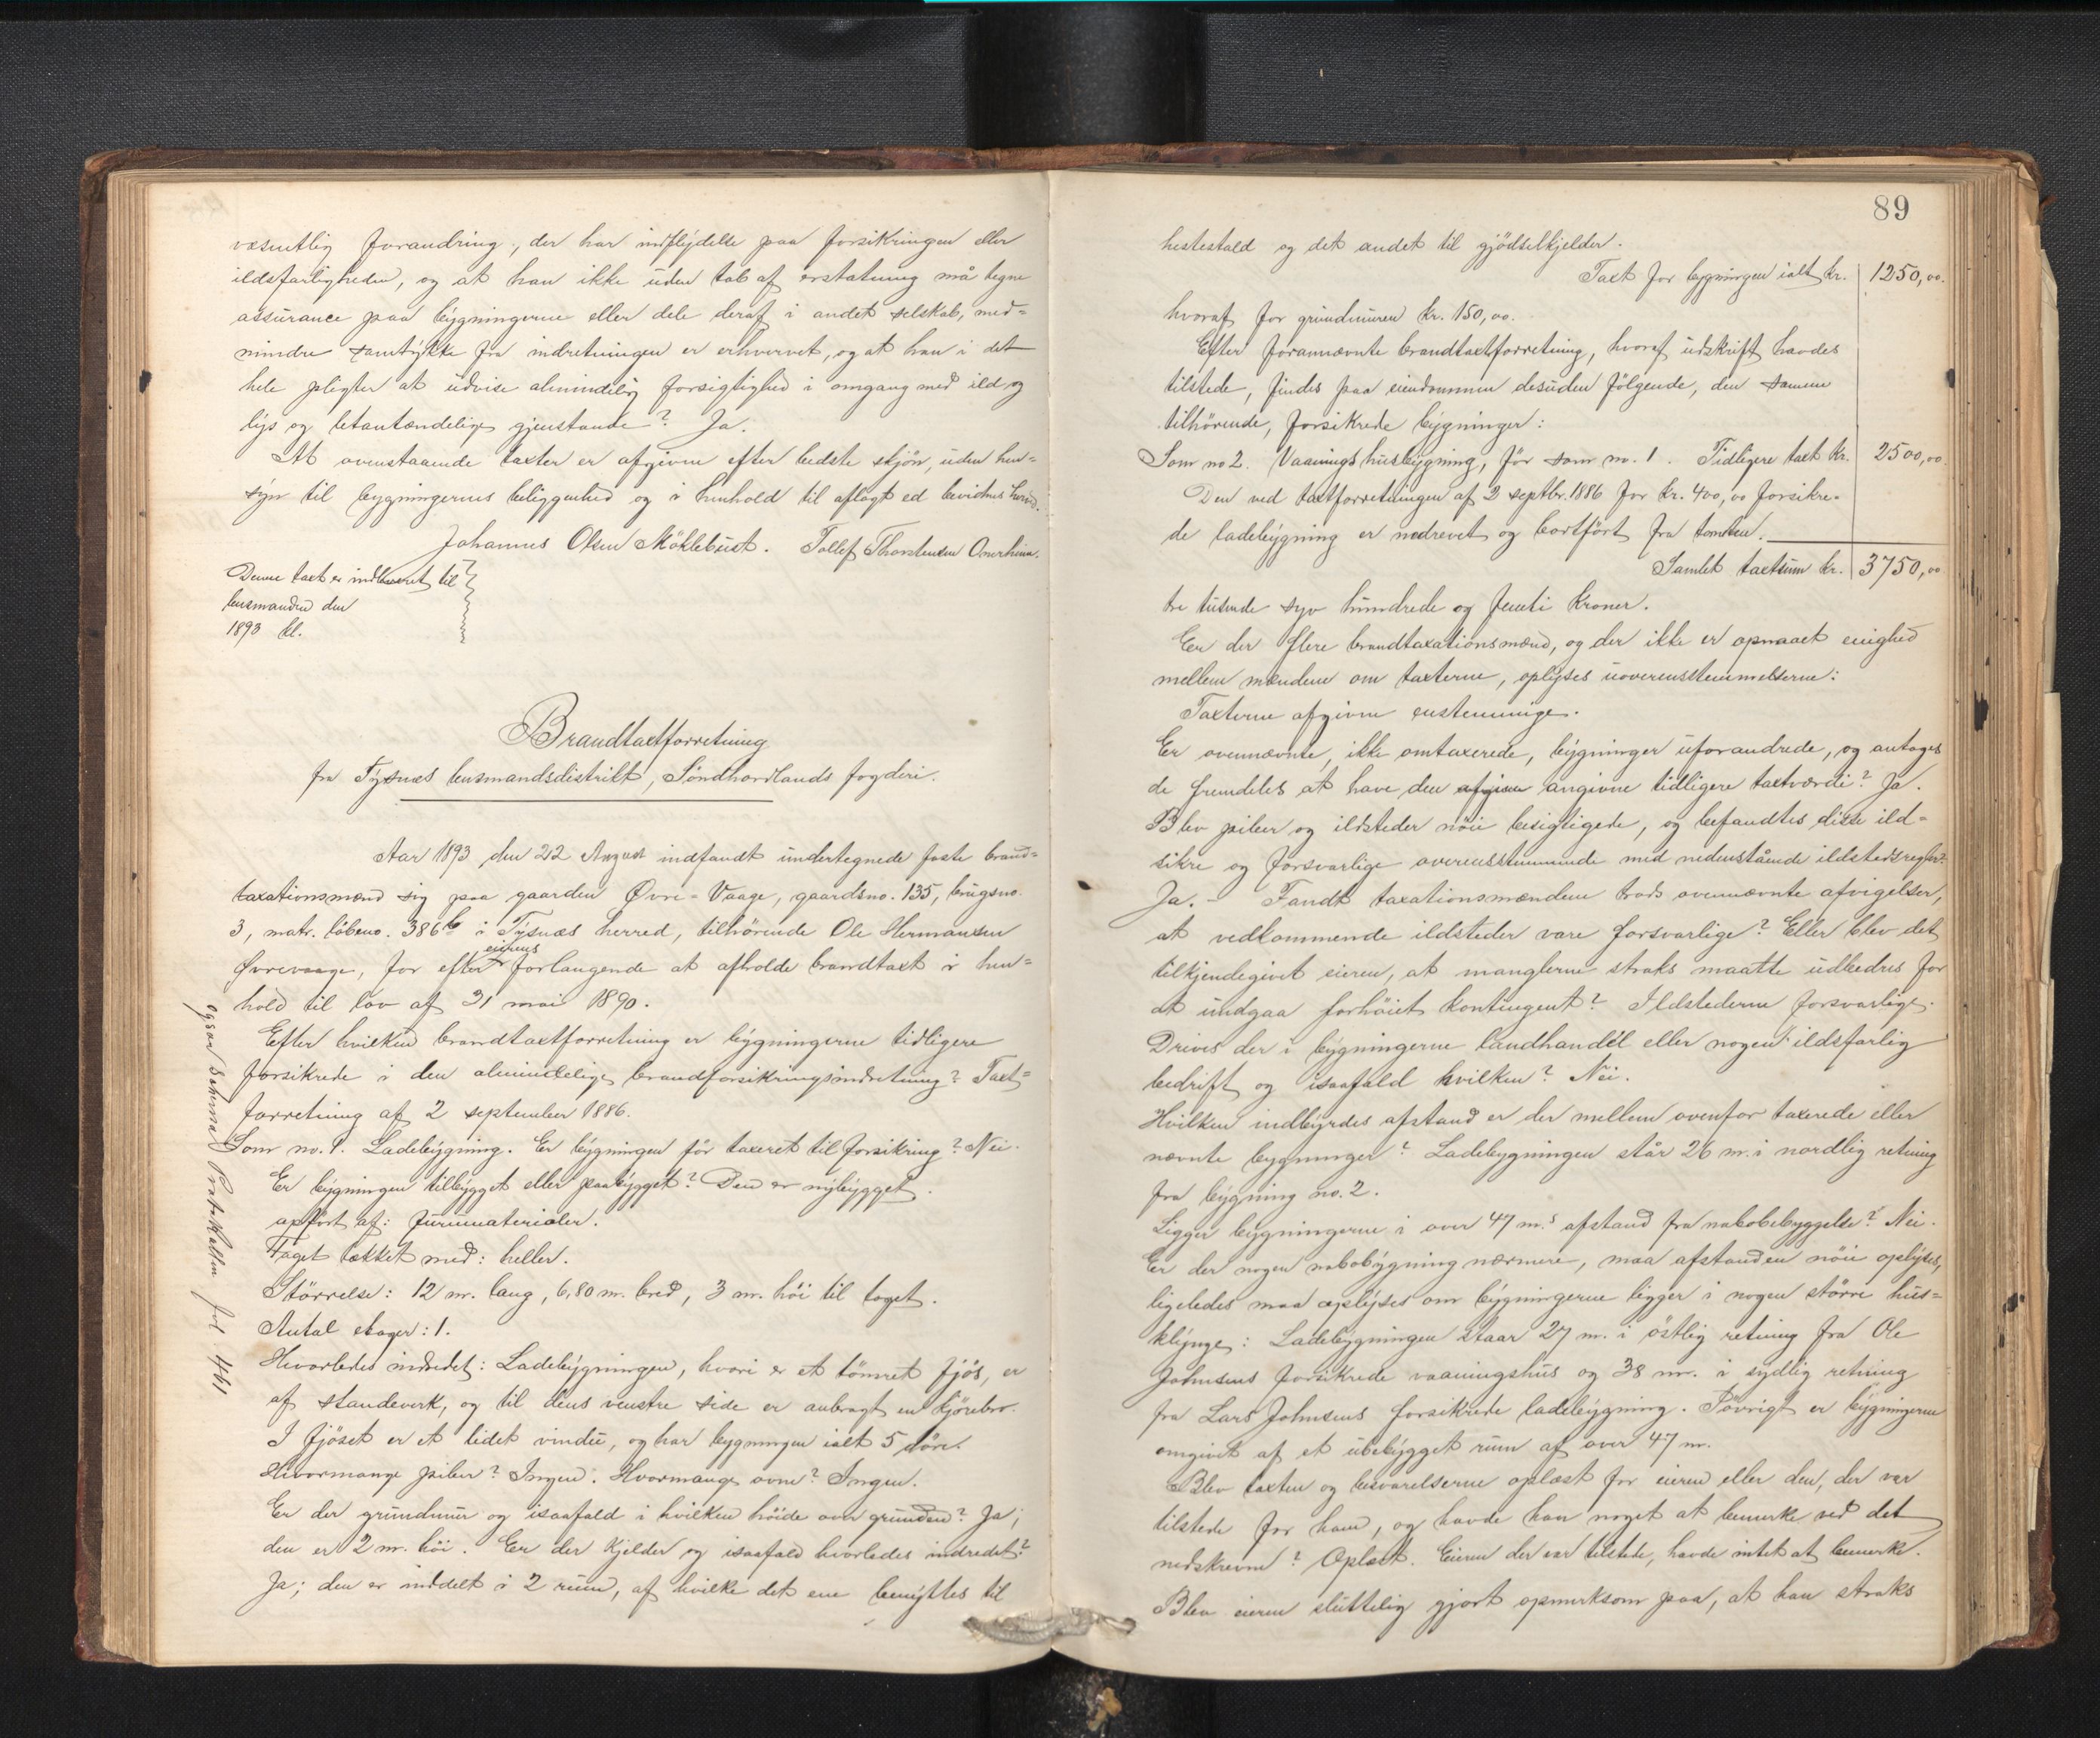 væsentlig forandring, der har indflydelse paa forsikringen eller
ildsfarligheden, og at han ikke uden tab af erstatning må tegne
assurance paa bygningerne eller dele deraf i andet selskab, med-
mindre samtykke fra indretningen er erhvervet, og at han i det
hele pligter at udvise almindelig forsigtighed i omgang med ild og
lys og letantændelige gjenstande? Ja.
At ovenstaaende taxter er afgivne efter bedste skjön, uden hen-
syn til bygningernes beliggenhed og i henhold til aflagt ed bevidnes herved.
Johannes Olsen Möklebust. Tollef Thorstensen Onerheim.
Denne taxt er indleveret til
lensmanden den
1893 kl.
Brandtaxtforretning
fra Tysnæs lensmandsdistrikt, Söndhordlands fogderi.
Aar 1893 den 22 August indfandt undertegnede faste brand-
taxationsmænd sig paa gaarden Øvre-Vaage, gaardsno. 135, brugsno.
3, matr. löbeno. 386b i Tysnæs herred, tilhörende Ole Hermansen
Øvrevaage, for efter eierens forlangende at afholde brandtaxt i hen-
hold til lov af 31 mai 1890.
Efter hvilken brandtaxtforretning er bygningerne tidligere
forsikrede i den almindelige brandforsikringsindretning? Taxt-
forretning af 2 september 1886.
Som no. 1. Ladebygning. Er bygningen för taxeret til forsikring? Nei.
Er bygningen tilbygget eller paabygget? Den er nybygget.
opfört af: furumaterialer.
Taget tækket med: heller.
Störrelse: 12 m. lang, 6,80 m. bred, 3 m. höi til taget.
Antal etager: 1.
Hvorledes indredet: Ladebygningen, hvori er et tömret fjös, er
af standeverk, og til dens venstre side er anbragt en kjörebro.
I fjöset er et lidet vindu, og har bygningen ialt 5 döre.
Hvormange piber? Ingen. Hvormange ovne? Ingen.
Er der grundmur og isaafald i hvilken höide over grunden? Ja;
den er 2 m. höi. Er der kjelder og isaafald hvorledes indredet?
Ja; den er inddelt i 2 rum, af hvilke det ene benyttes til
ogsaa Protokollen fol 461
89
hestestald og det andet til gjödselkjelder.
Taxt for bygningen ialt kr. 1250,00.
hvoraf for grundmuren kr. 150,00.
Efter forannævnte brandtaxtforretning, hvoraf udskrift havdes
tilstede, findes paa eiendommen desuden fölgende, den samme
tilhörende, forsikrede bygninger:
Som no 2. Vaaningshusbygning, för som no. 1. Tidligere taxt Kr. 2500,00
Den ved taxtforretningen af 2 septbr. 1886 for kr. 400,00 forsikre-
de ladebygning er nedrevet og bortfört fra tomten.
Samlet taxtsum kr. 3750,00
tre tusende syv hundrede og femti Kroner.
Er der flere brandtaxationsmænd, og der ikke er opnaaet enighed
mellem mændene om taxterne, oplyses uoverensstemmelserne:
Taxterne afgivne enstemmige.
Er ovennævnte, ikke omtaxerede, bygninger uforandrede, og antages
de fremdeles at have den afgivne angivne tidligere taxtværdi? Ja.
Blev piber og ildsteder nöie besigtigede, og befandtes disse ild-
sikre og forsvarlige overensstemmende med nedenstående ildstedsregler?
Ja. - Fandt taxationsmændene trods ovennævnte afvigelser,
at vedkommende ildsteder vare forsvarlige? Eller blev det
tilkjendegivet eieren, at manglerne straks maatte udbedres for
at undgaa forhöiet kontingent? Ildstederne forsvarlige.
Drives der i bygningerne landhandel eller nogen ildsfarlig
bedrift og isaafald hvilken? Nei.
Hvilken indbyrdes afstand er der mellem ovenfor taxerede eller
nævnte bygninger? Ladebygningen står 26 m. i nordlig retning
fra bygning no. 2.
Ligger bygningerne i over 47 m.s afstand fra nabobebyggelse? Nei.
Er der nogen nabobygning nærmere, maa afstanden nöie oplyses,
ligeledes maa oplyses om bygningerne ligger i nogen större hus-
klynge: Ladebygningen staar 27 m. i östlig retning fra Ole
Johnsens forsikrede vaaningshus og 38 m. i sydlig retning
fra Lars Johnsens forsikrede ladebygning. Iövrigt er bygningerne
omgivet af et ubebygget rum af over 47 m.
Blev taxten og besvarelserne oplæst for eieren eller den, der var
tilstede for ham, og havde han noget at bemerke ved det
nedskrevne? Oplæst. Eieren der var tilstede, havde intet at bemerke.
Blev eieren sluttelig gjort opmerksom paa, at han straks